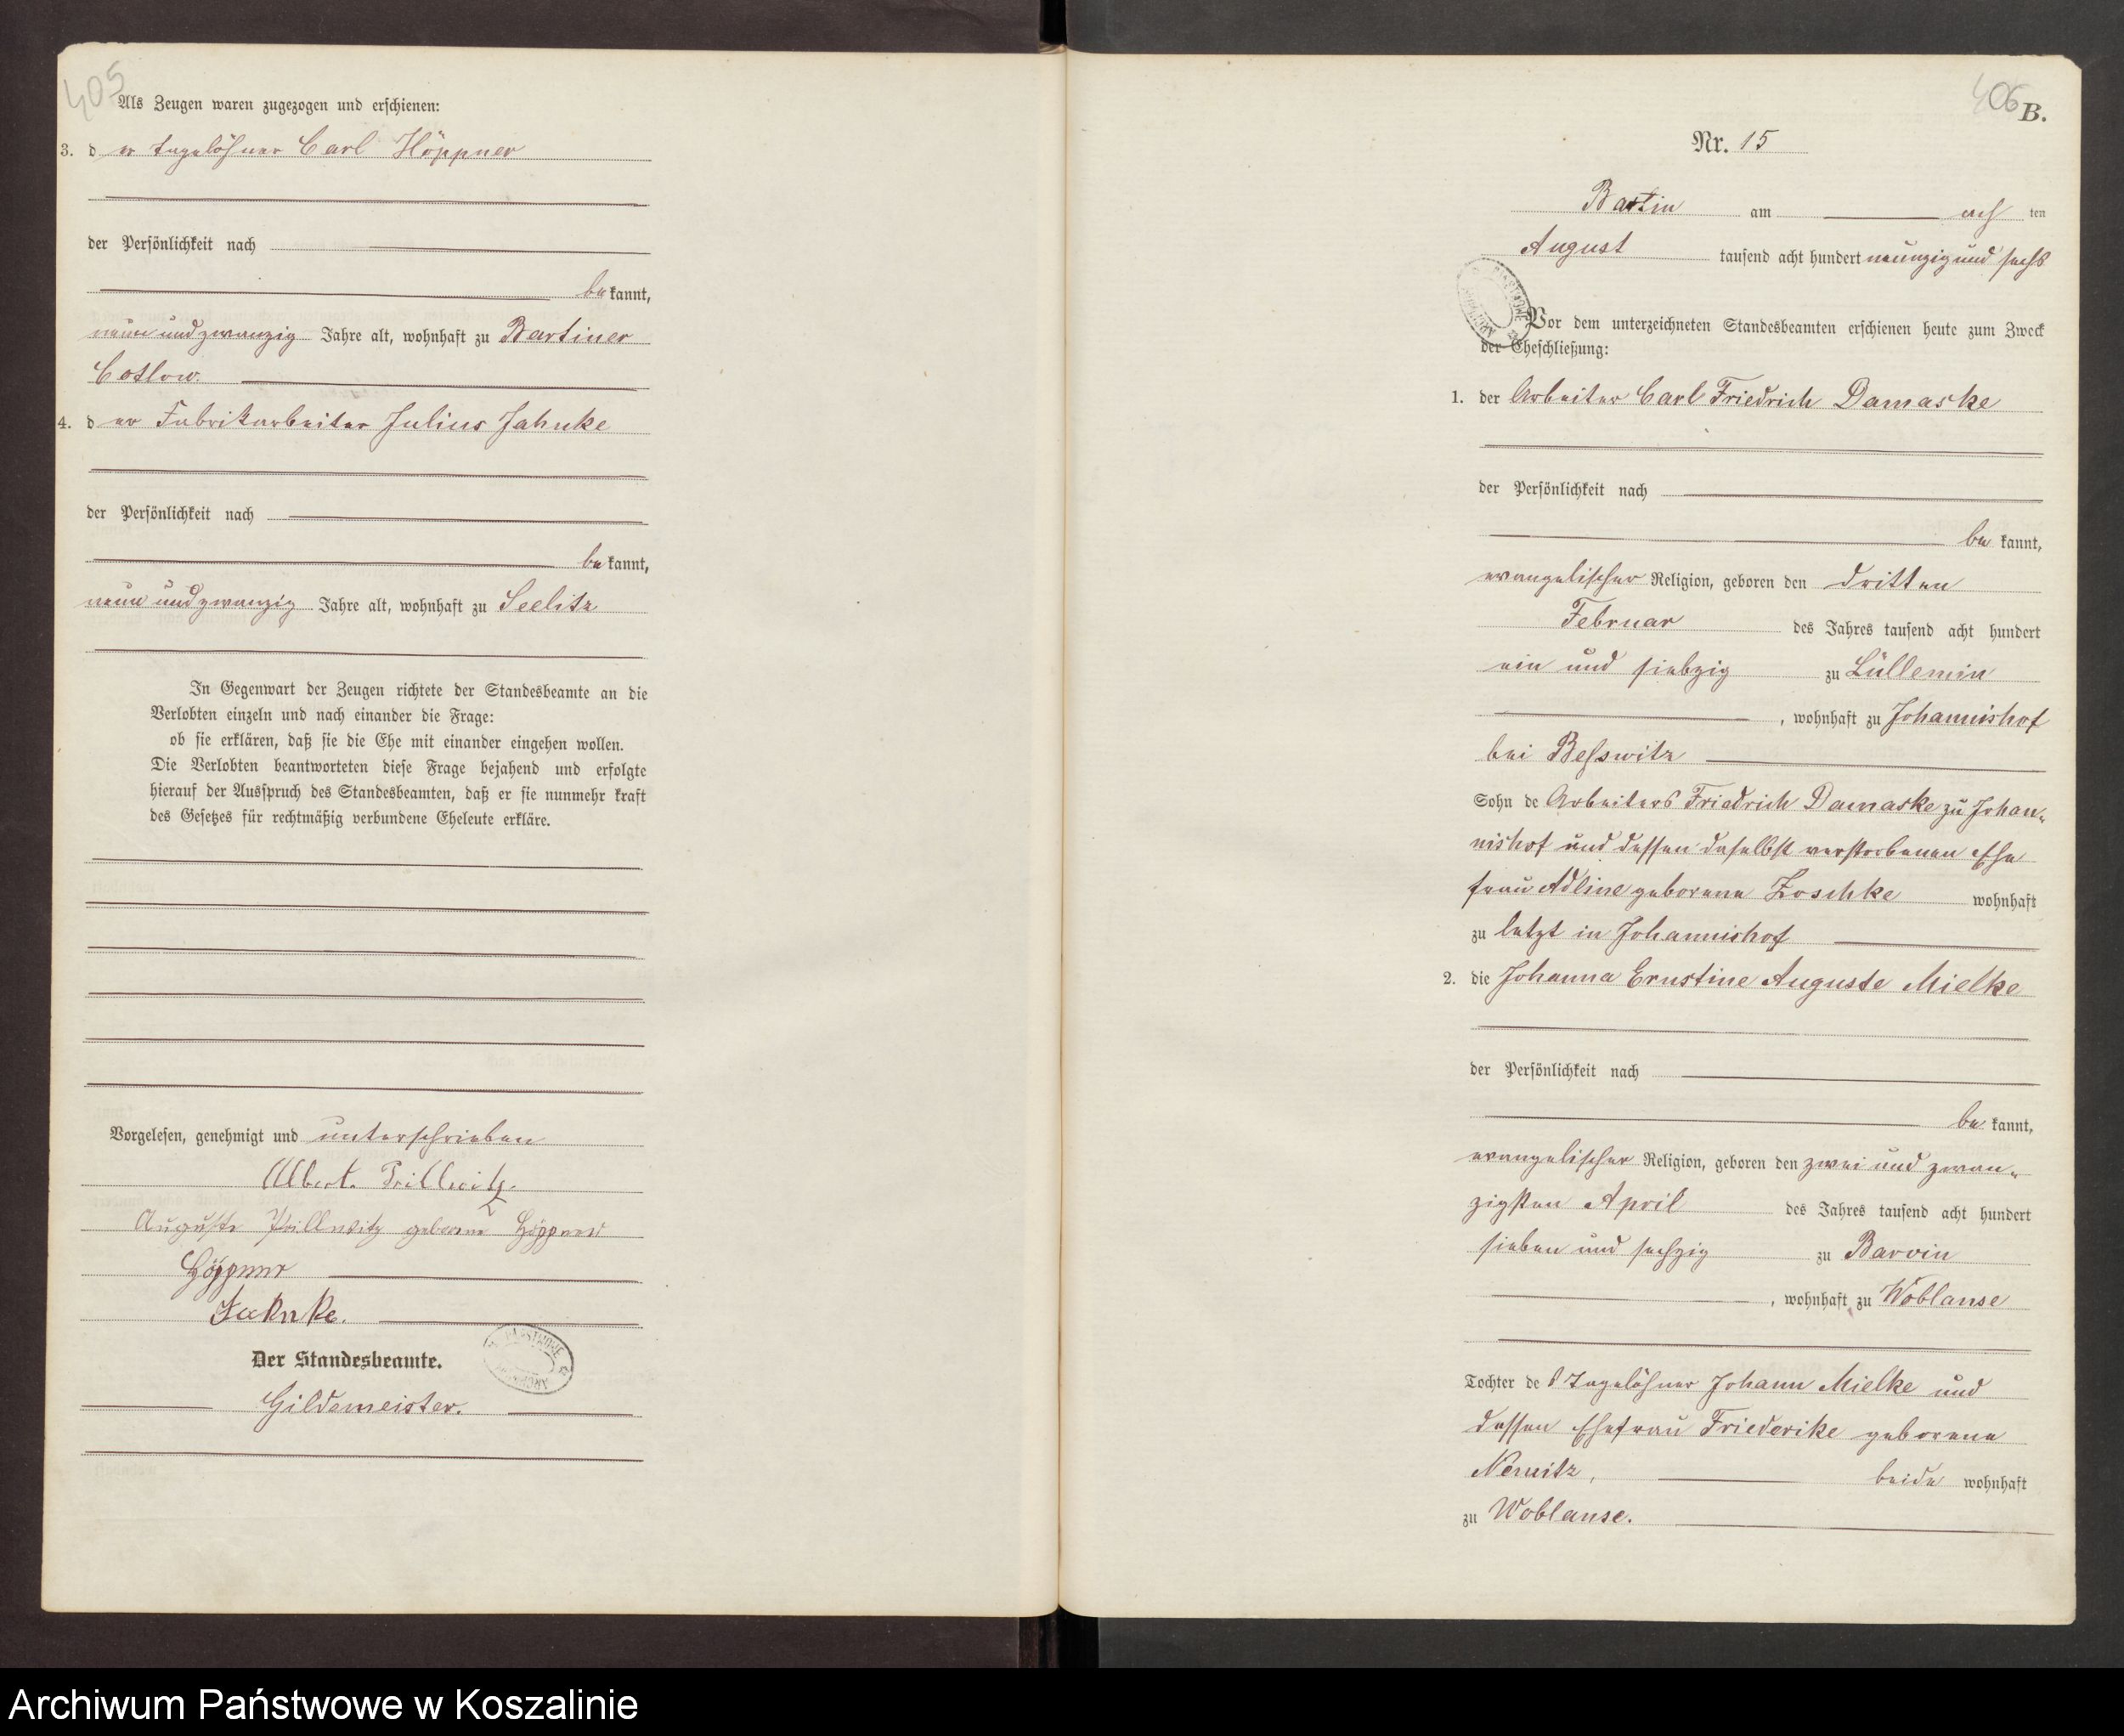 405
Als Zeugen waren zugezogen und erschienen:
3. d er Tagelöhner Carl Höppner
der Persönlichkeit nach
be kannt,
neun und zwanzig Jahre alt, wohnhaft zu Bartiner
Cotlow.
4. d er Fabrikarbeiter Julius Jahnke
der Persönlichkeit nach
be kannt,
neun und zwanzig Jahre alt, wohnhaft zu Seelitz
In Gegenwart der Zeugen richtete der Standesbeamte an die
Verlobten einzeln und nach einander die Frage:
ob sie erklären, daß sie die Ehe mit einander eingehen wollen.
Die Verlobten beantworteten diese Frage bejahend und erfolgte
hierauf der Ausspruch des Standesbeamten, daß er sie nunmehr kraft
des Gesetzes für rechtmäßig verbundene Eheleute erkläre.
Vorgelesen, genehmigt und unterschrieben
Albert Prillwitz.
Auguste Prillwitz geborene Höppner
Höppner
Jahnke.
Der Standesbeamte.
Gildemeister.
406
B.
Nr. 15
Bartin am ach ten
August tausend acht hundert neunzig und sechs
Vor dem unterzeichneten Standesbeamten erschienen heute zum Zweck
der Eheschließung:
1. der Arbeiter Carl Friedrich Damaske
der Persönlichkeit nach
be kannt,
evangelischer Religion, geboren den dritten
Februar des Jahres tausend acht hundert
ein und siebzig zu Lüllemin
, wohnhaft zu Johannishof
bei Besswitz
Sohn de Arbeiters Friedrich Damaske zu Johan-
nishof und dessen daselbst verstorbenen Ehe
frau Adline geborene Zoschke wohnhaft
zu letzt in Johannishof
2. die Johanna Ernstine Auguste Mielke
der Persönlichkeit nach
be kannt,
evangelischer Religion, geboren den zwei und zwan-
zigsten April des Jahres tausend acht hundert
sieben und sechzig zu Barvin
, wohnhaft zu Woblanse
Tochter de s Tagelöhner Johann Mielke und
dessen Ehefrau Friederike geborene
Nemitz, beide wohnhaft
zu Woblanse.
Archiwum Państwowe w Koszalinie